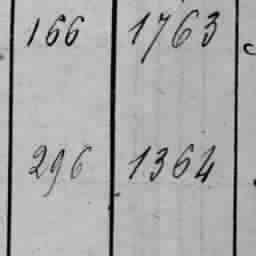 166 1763
296 1364